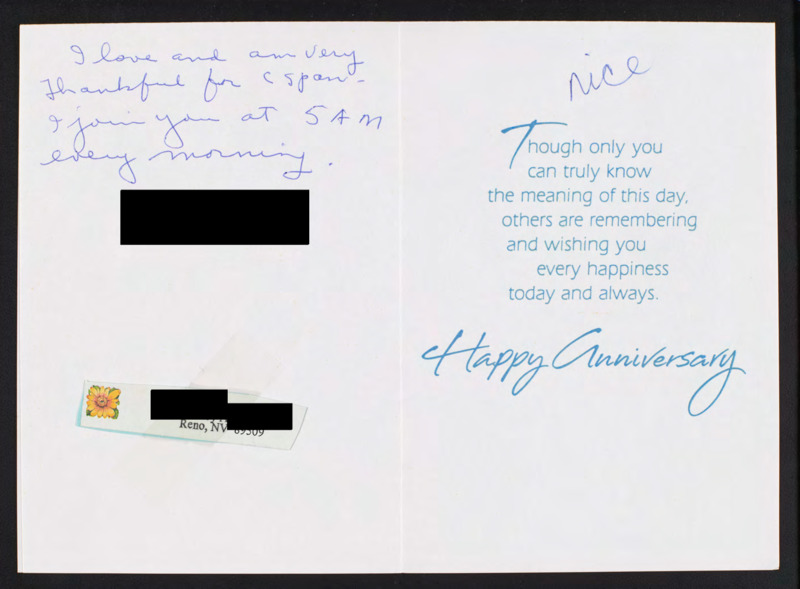 I love and am very
thankful for C Span -
I join you at 5 AM
every morning.
Reno, NV 89509
nice
Though only you
can truly know
the meaning of this day,
others are remembering
and wishing you
every happiness
today and always.
Happy Anniversary